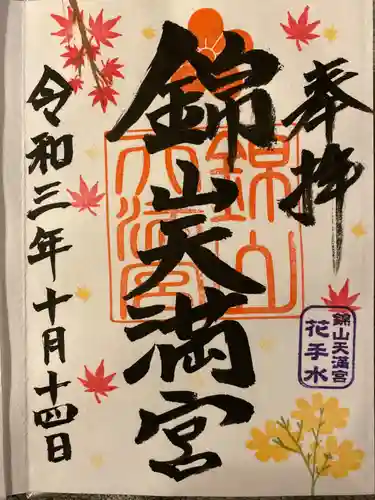 奉拝
錦山天満宮
錦山天満宮
錦山天満宮
花手水
令和三年十月十四日